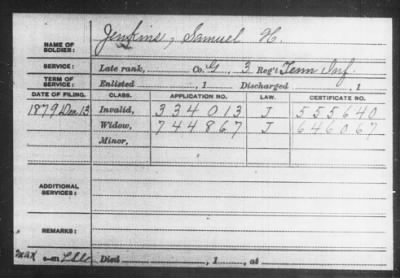 NAME OF SOLDIER: Jenkins, Samuel H.
SERVICE: Late rank, Co. G, 3 Reg't Tenn Inf.
TERM OF SERVICE: Enlisted , 1 Discharged , 1
DATE OF FILING. CLASS. APPLICATION NO. LAW. CERTIFICATE NO.
1879 Dec 13 Invalid, 334013 J 555640
Widow, 744867 J 646067
Minor,
ADDITIONAL SERVICES:
REMARKS:
Died , 1 , at